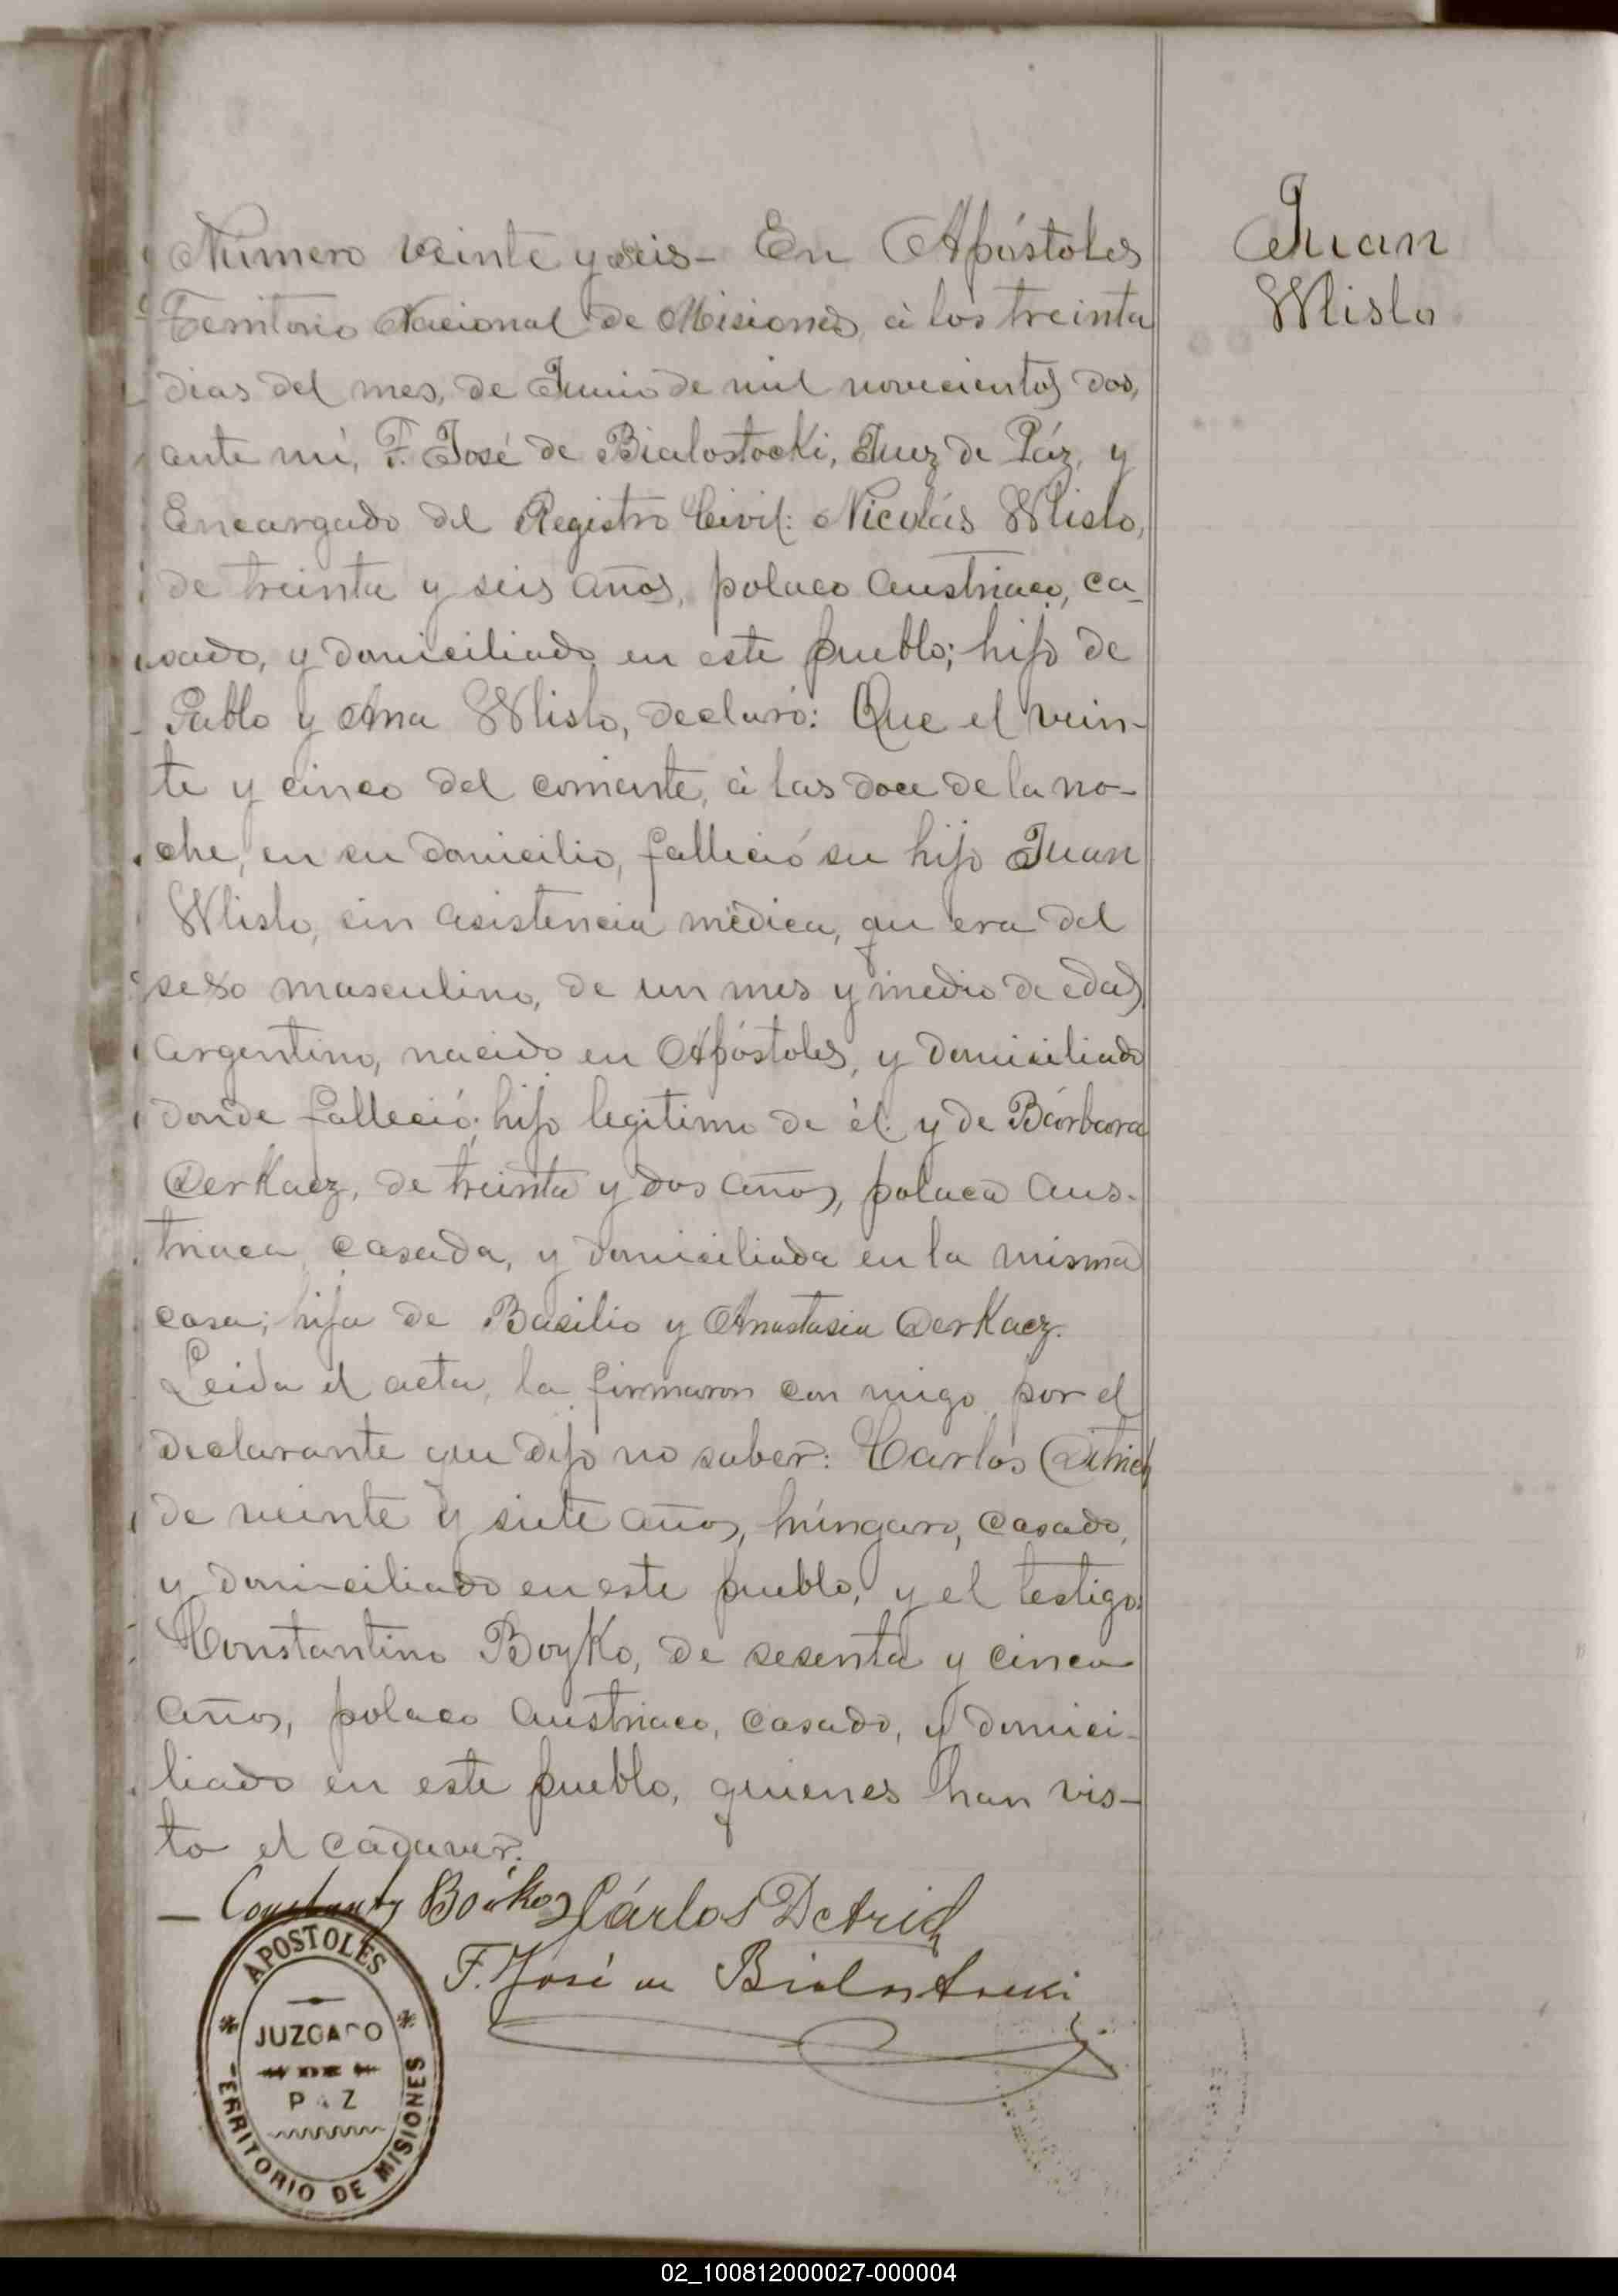 Juan
Wlislo
Número veinte y seis - En Apóstoles
Territorio Nacional de Misiones, á los treinta
dias del mes, de Junio de mil novecientos dos,
ante mí, F. José de Bialostocki, Juez de Páz, y
Encargado del Registro Civil: Nicolás Wlislo,
de treinta y seis años, polaco austriaco, ca-
sado, y domiciliado en este pueblo; hijo de
Pablo y Ana Wlislo, declaró: Que el vein-
te y cinco del corriente, á las doce de la no-
che, en su domicilio, falleció su hijo Juan
Wlislo, sin asistencia médica, que era del
sexo masculino, de un mes y medio de edad,
argentino, nacido en Apóstoles, y domiciliado
donde falleció; hijo legitimo de él y de Bárbara
Derkacz, de treinta y dos años, polaca aus-
triaca, casada, y domiciliada en la misma
casa; hija de Basilio y Anastasia Derkacz.
Leida el acta, la firmaron con migo por el
declarante que dijo no saber: Carlos
de veinte y siete años, húngaro, casado,
y domiciliado en este pueblo, y el testigo:
Constantino Boyko, de sesenta y cinco
años, polaco austriaco, casado, y domici-
liado en este pueblo, quienes han vis-
to el cadaver.
Cárlos Detrich
F. José de Bialostocki
APOSTOLES
JUZGADO
DE
PAZ
TERRITORIO DE MISIONES
02_100812000027-000004